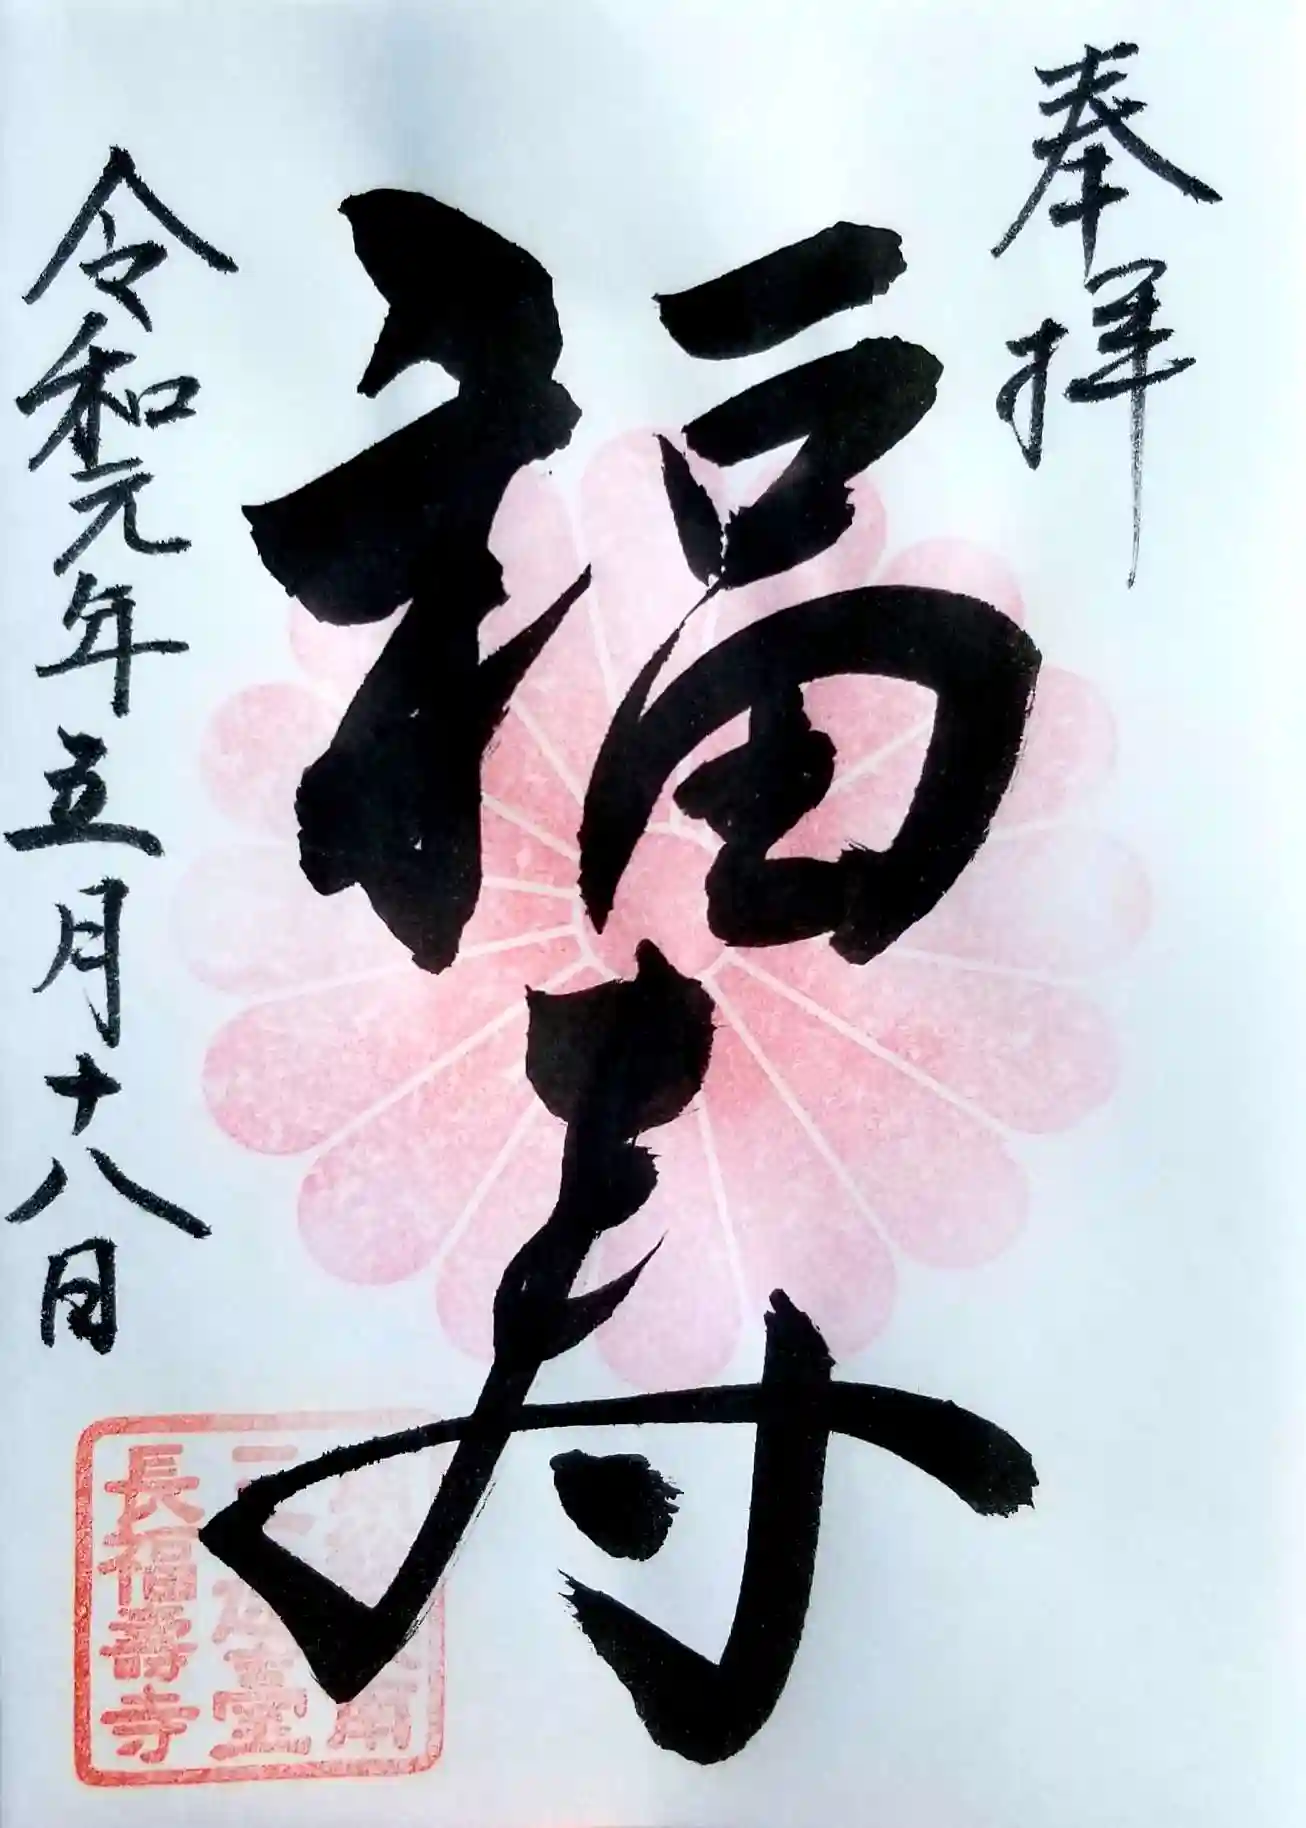 奉拝
福寿
令和元年五月十八日
長福壽寺